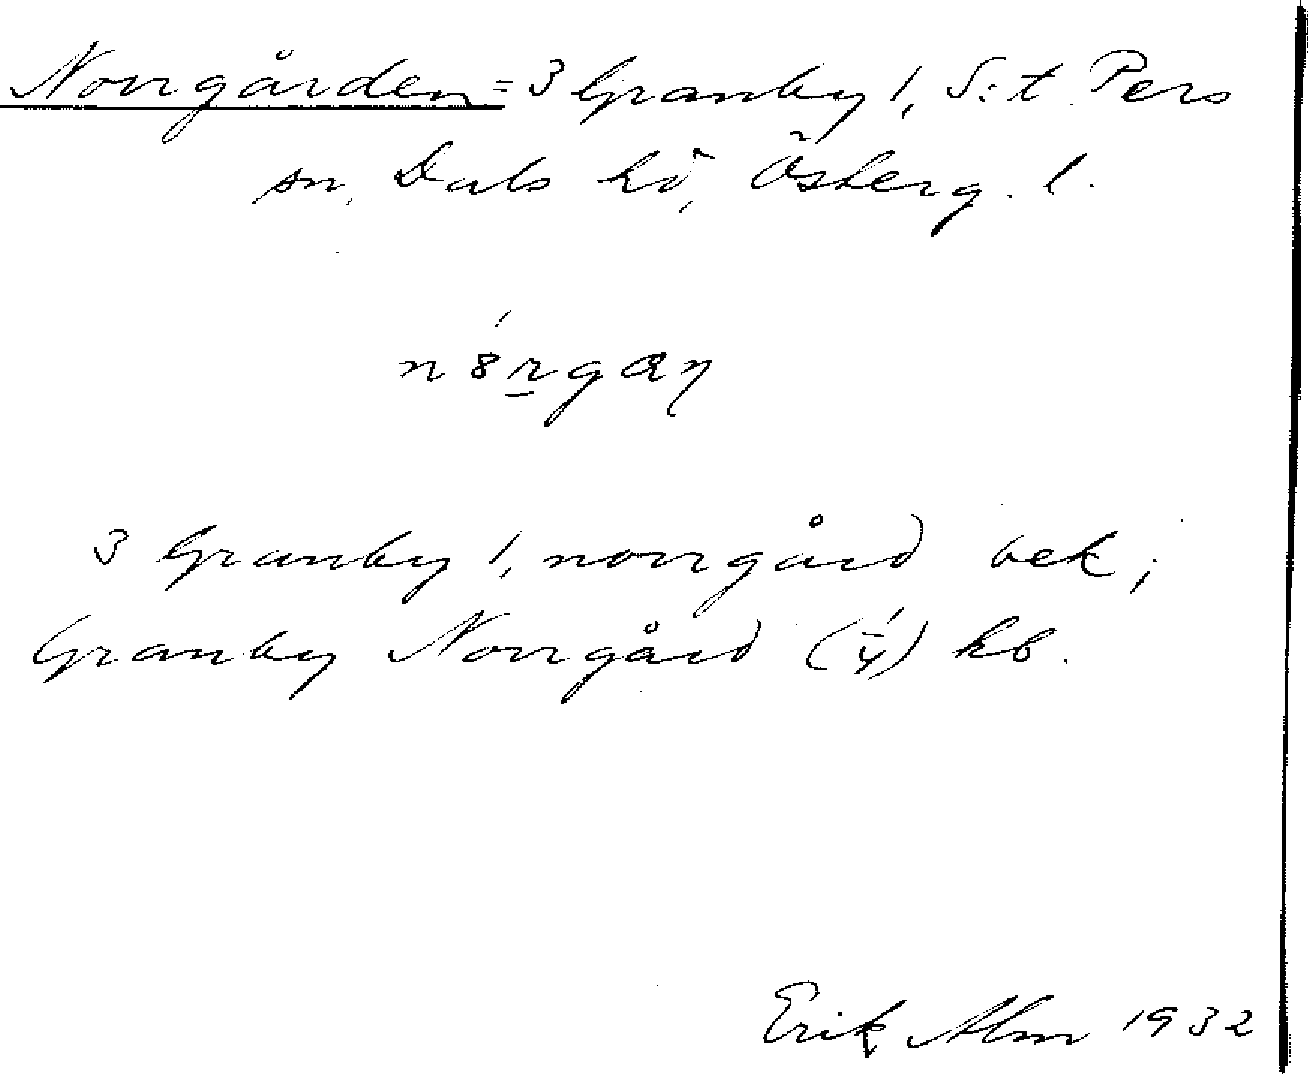 Norrgården = 3 Granby 1, S:t Pers
sn, Dals hd, Österg. l.
n8́r̲gaŋ
3 Granby 1, norrgård bek;
Granby Norrgård (1/4) kb.
Erik Alm 1932